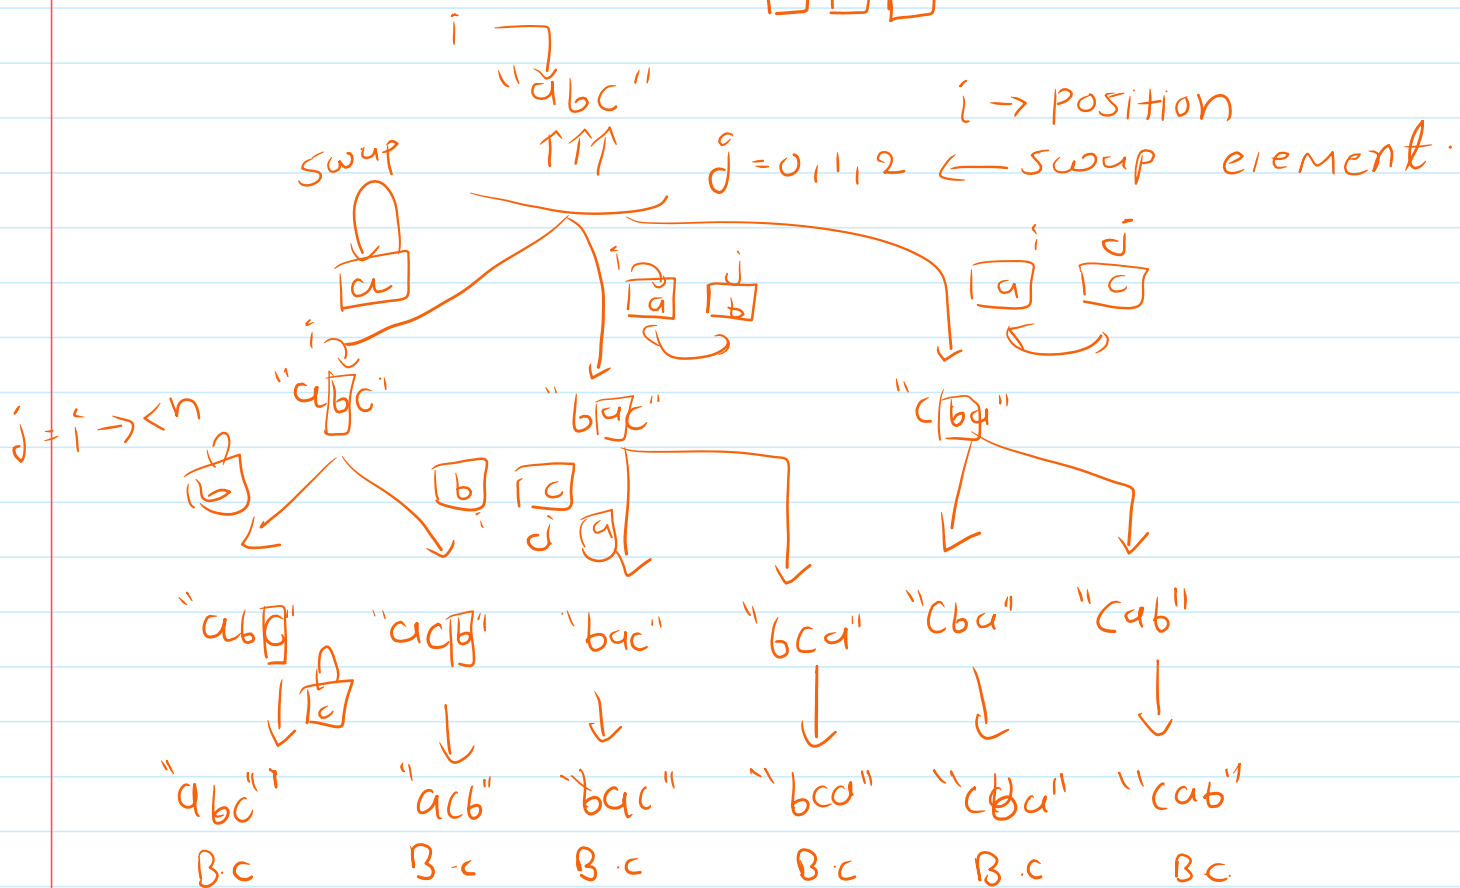 i
"abc"
i → position
swap
j = 0, 1, 2 ← swap element.
a
i
a
j
b
i
j
a
c
i
"abc"
"bac"
"cba"
j = i → <n
b
b
c
i
j
a
"abc"
"acb"
"bac"
"bca"
"cba"
"cab"
c
"abc"
"acb"
"bac"
"bca"
"cba"
"cab"
B.C
B.C
B.C
B.C
B.C
B.C.